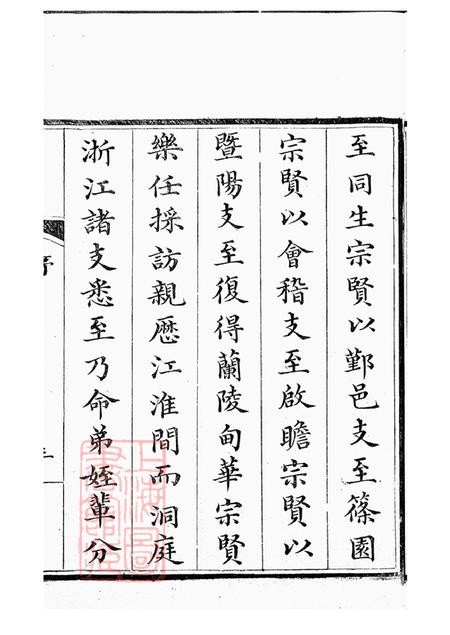 至同生宗賢以鄞邑支至篠園
宗賢以會稽支至啟瞻宗賢以
暨陽支至復得蘭陵甸華宗賢
樂任採訪親歷江淮間而洞庭
浙江諸支悉至乃命弟姪輩分
序
三
上海圖書館藏